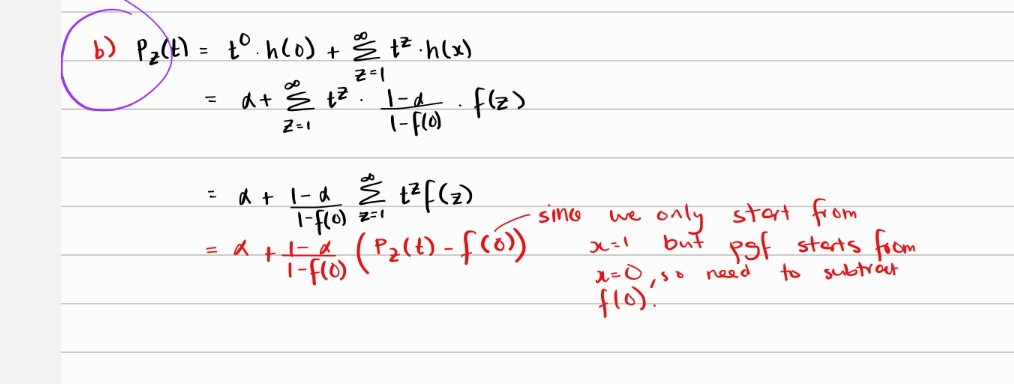 b) P_z(t) = t^0 · h(0) + ∞ Σ z=1 t^z · h(x)
= α + ∞ Σ z=1 t^z · (1-α)/(1-f(0)) · f(z)
= α + (1-α)/(1-f(0)) ∞ Σ z=1 t^z f(z)
= α + (1-α)/(1-f(0)) (P_z(t) - f(0))
since we only start from
x=1 but pgf starts from
x=0, so need to subtract
f(0).